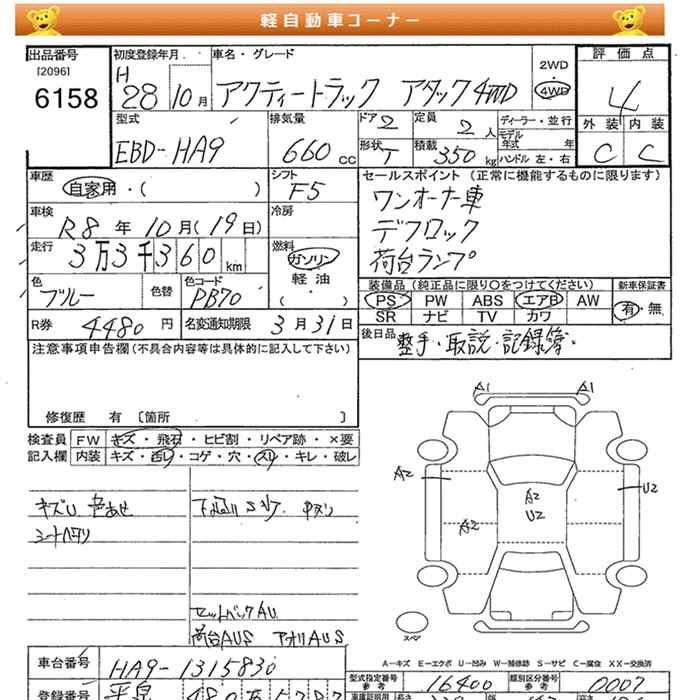 軽自動車コーナー
出品番号 初度登録年月 車名・グレード 評価点
[2096] H 2WD
6158 28 10月 アクティートラック アタック4WD 4WD 4
型式 排気量 ドア 2 定員 2人 ディーラー・並行 外装 内装
モデル年式 年
EBD-HA9 660cc 形状 T 積載 350kg ハンドル 左・右 C C
車歴 シフト セールスポイント(正常に機能するものに限ります)
自家用・( ) F5 ワンオーナー車
車検 冷房 デフロック
R8年10月(19日) 荷台ランプ
走行 燃料
3万3千360km ガソリン
軽油
・( )
色 色替 色コード 装備品(純正品に限り○をつけてください) 新車保証書
ブルー PB70 PS PW ABS エアB AW 有・無
SR ナビ TV カワ
R券 4480円 名変通知期限 3月31日 後日品 整手・取説・記録簿・
注意事項申告欄(不具合内容等は具体的に記入して下さい)
修復歴 有 [箇所 ]
検査員 FW キズ・飛石・ヒビ割・リペア跡・×要
記入欄 内装 キズ・汚レ・コゲ・穴・スリ・キレ・破レ
A1 A1
A2 U2
A2
U2
A2
キズU 色あせ
シートヘタリ
セットバックAU
荷台AUS アオリAUS
スペア
A-キズ E-エクボ U-凹み W-補修跡 S-サビ C-腐食 XX-交換済
車台番号 HA9-1315830 型式指定番号 参考 16400 類別区分番号 参考 0007
登録番号